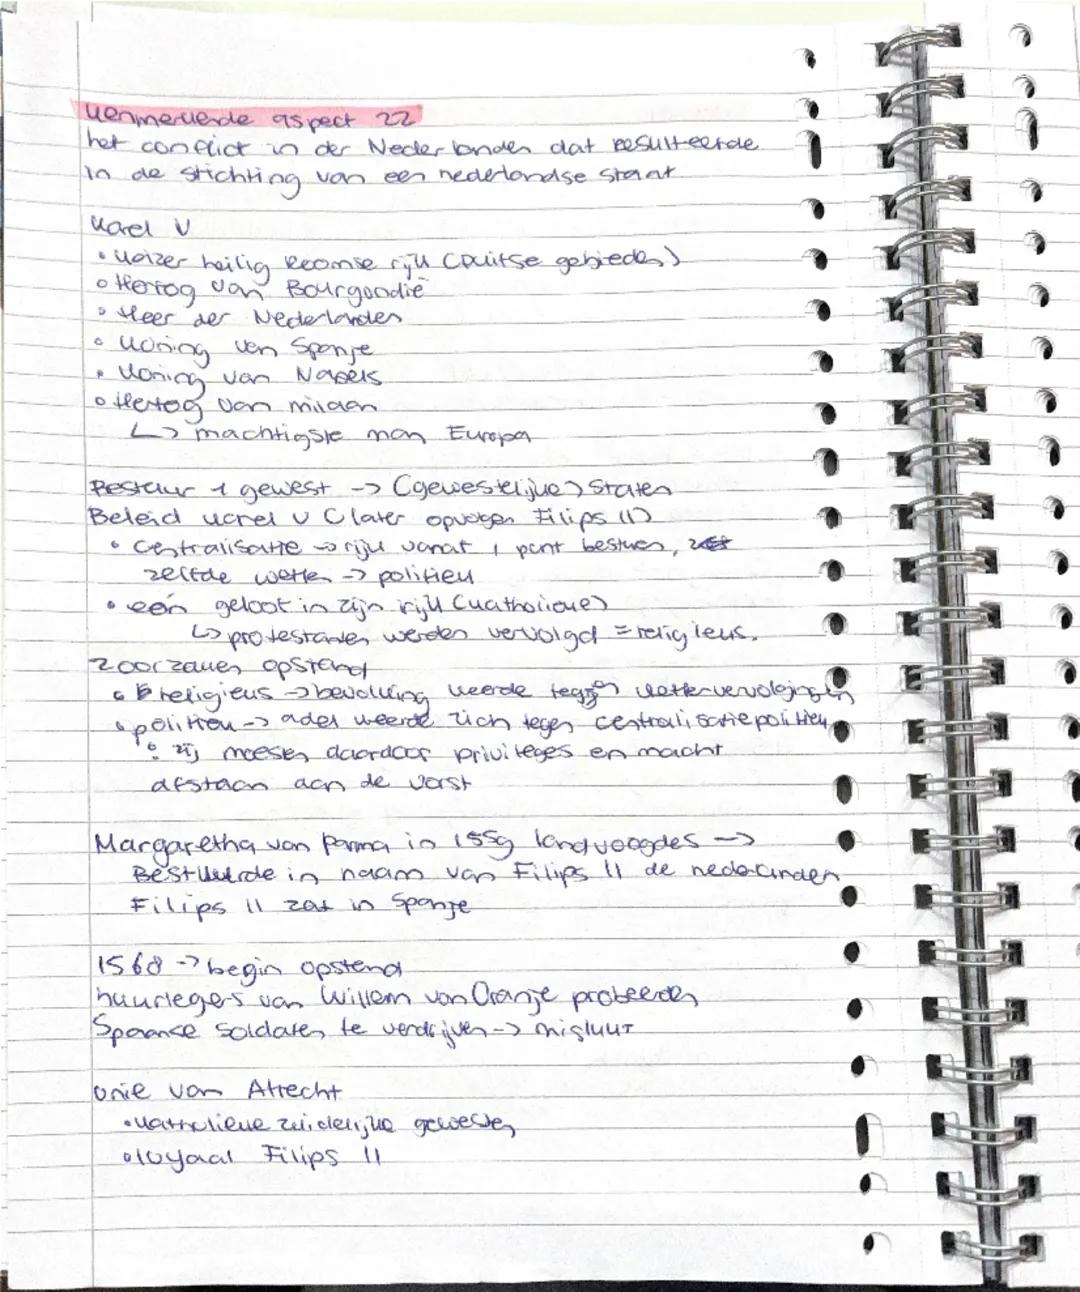 kenmerkende aspect 22
het conflict in der Nederlanden dat resulteerde
in de stichting van een nederlandse staat
Karel V
• Keizer heilig Roomse rijk (Duitse gebieden)
• Hertog van Bourgondië
• Heer der Nederlanden
• Koning van Spanje
• Koning van Napels
• Hertog van milaan
↳ machtigste man Europa
Bestuur 1 gewest -> (gewestelijke) Staten
Beleid karel V (later opvolger Filips II)
• Centralisatie -> rijk vanaf 1 punt besturen,
zelfde wetten -> politiek
• één geloof in zijn rijk (katholieke)
↳ protestanten werden vervolgd = religieus.
2 oorzaken opstand
• religieus -> bevolking keerde tegen kettervervolgingen
• politiek -> adel weerde zich tegen centralisatiepolitiek
• zij moesten daardoor privileges en macht
afstaan aan de vorst
Margaretha van Parma in 1559 landvoogdes ->
Bestuurde in naam van Filips II de nederlanden
Filips II zat in Spanje
1568 -> begin opstand
huurlegers van Willem van Oranje probeerden
Spaanse soldaten te verdrijven -> mislukt
Unie van Atrecht
• katholieke zuidelijke gewesten
• loyaal Filips II